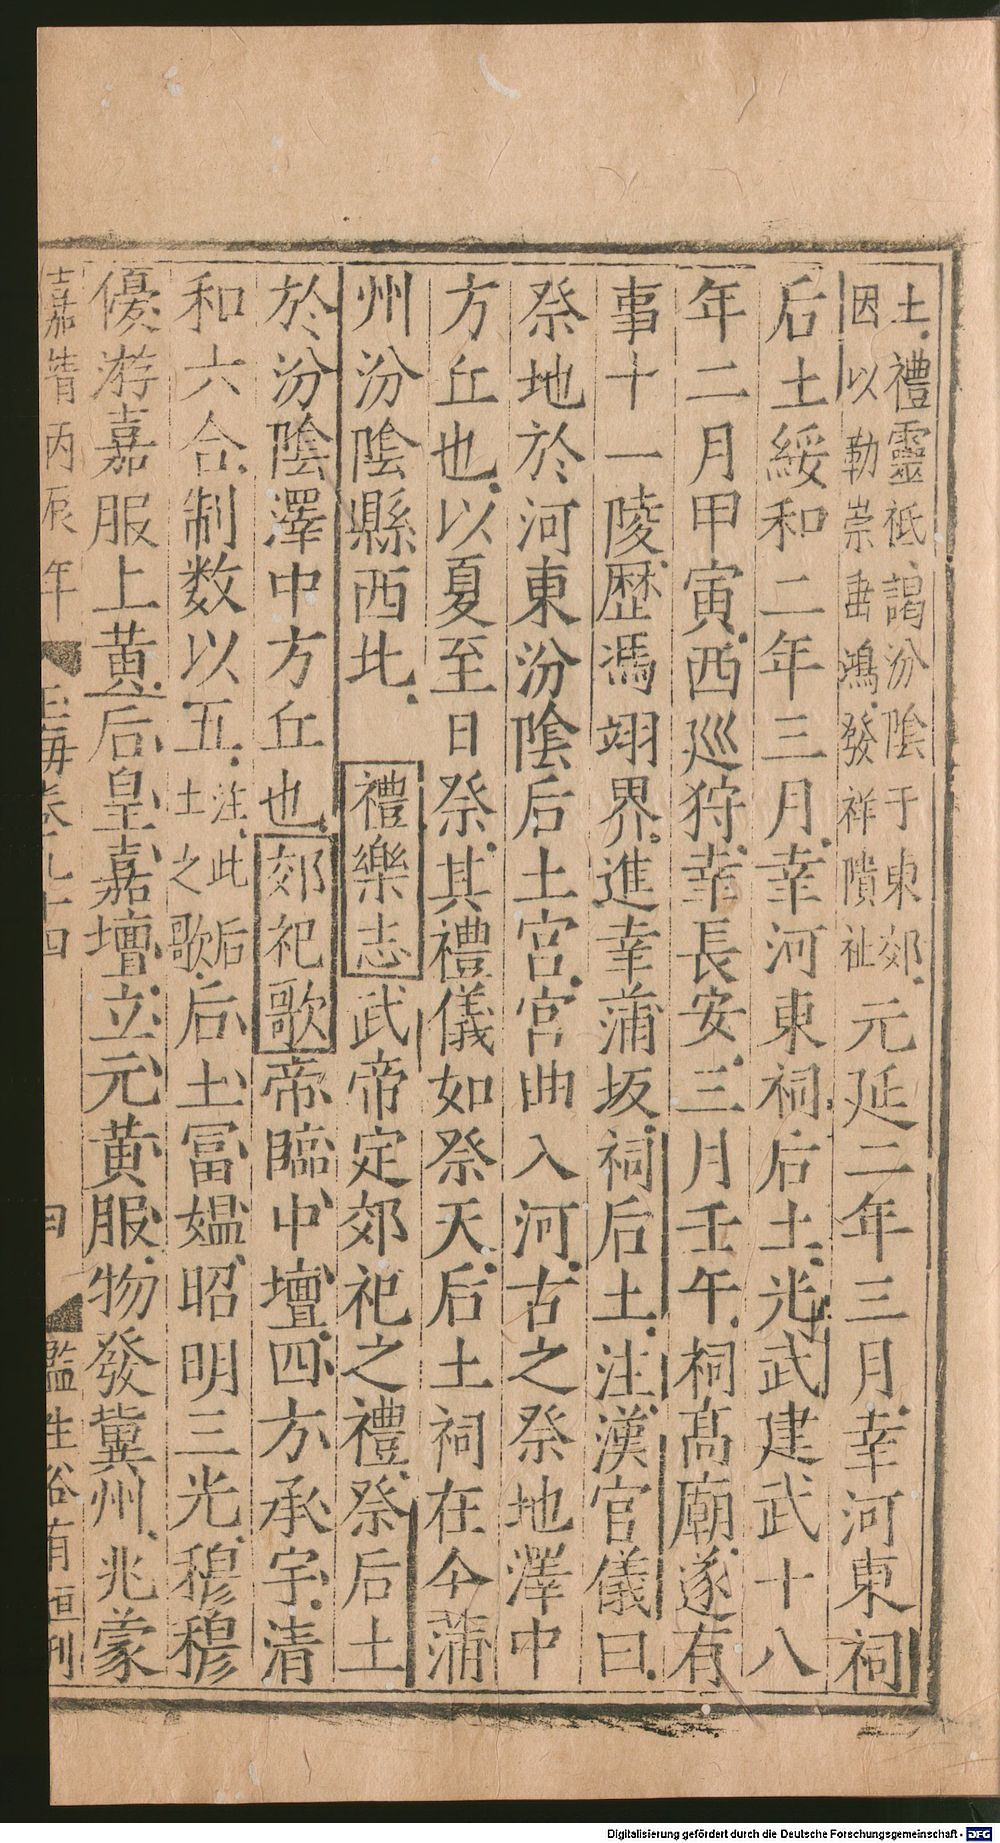 土禮靈祇謁汾陰于東郊
因以勒崇垂鴻發祥隤祉元延二年三月幸河東祠
后土綏和二年三月幸河東祠后土光武建武十八
年二月甲寅西巡狩幸長安三月壬午祠高廟遂有
事十一陵歷馮翊界進幸蒲坂祠后土注漢官儀曰
祭地於河東汾陰后土宮宮曲入河古之祭地澤中
方丘也以夏至日祭其禮儀如祭天后土祠在今蒲
州汾陰縣西北禮樂志武帝定郊祀之禮祭后土
於汾陰澤中方丘也郊祀歌帝臨中壇四方承宇清
和六合制数以五注此后土之歌后土冨媪昭明三光穆穆
優游嘉服上黃后皇嘉壇立元黄服物發冀州兆蒙
嘉靖丙辰年 玉海卷九十四 四 監生俗有恒刊
Digitalisierung gefördert durch die Deutsche Forschungsgemeinschaft - DFG